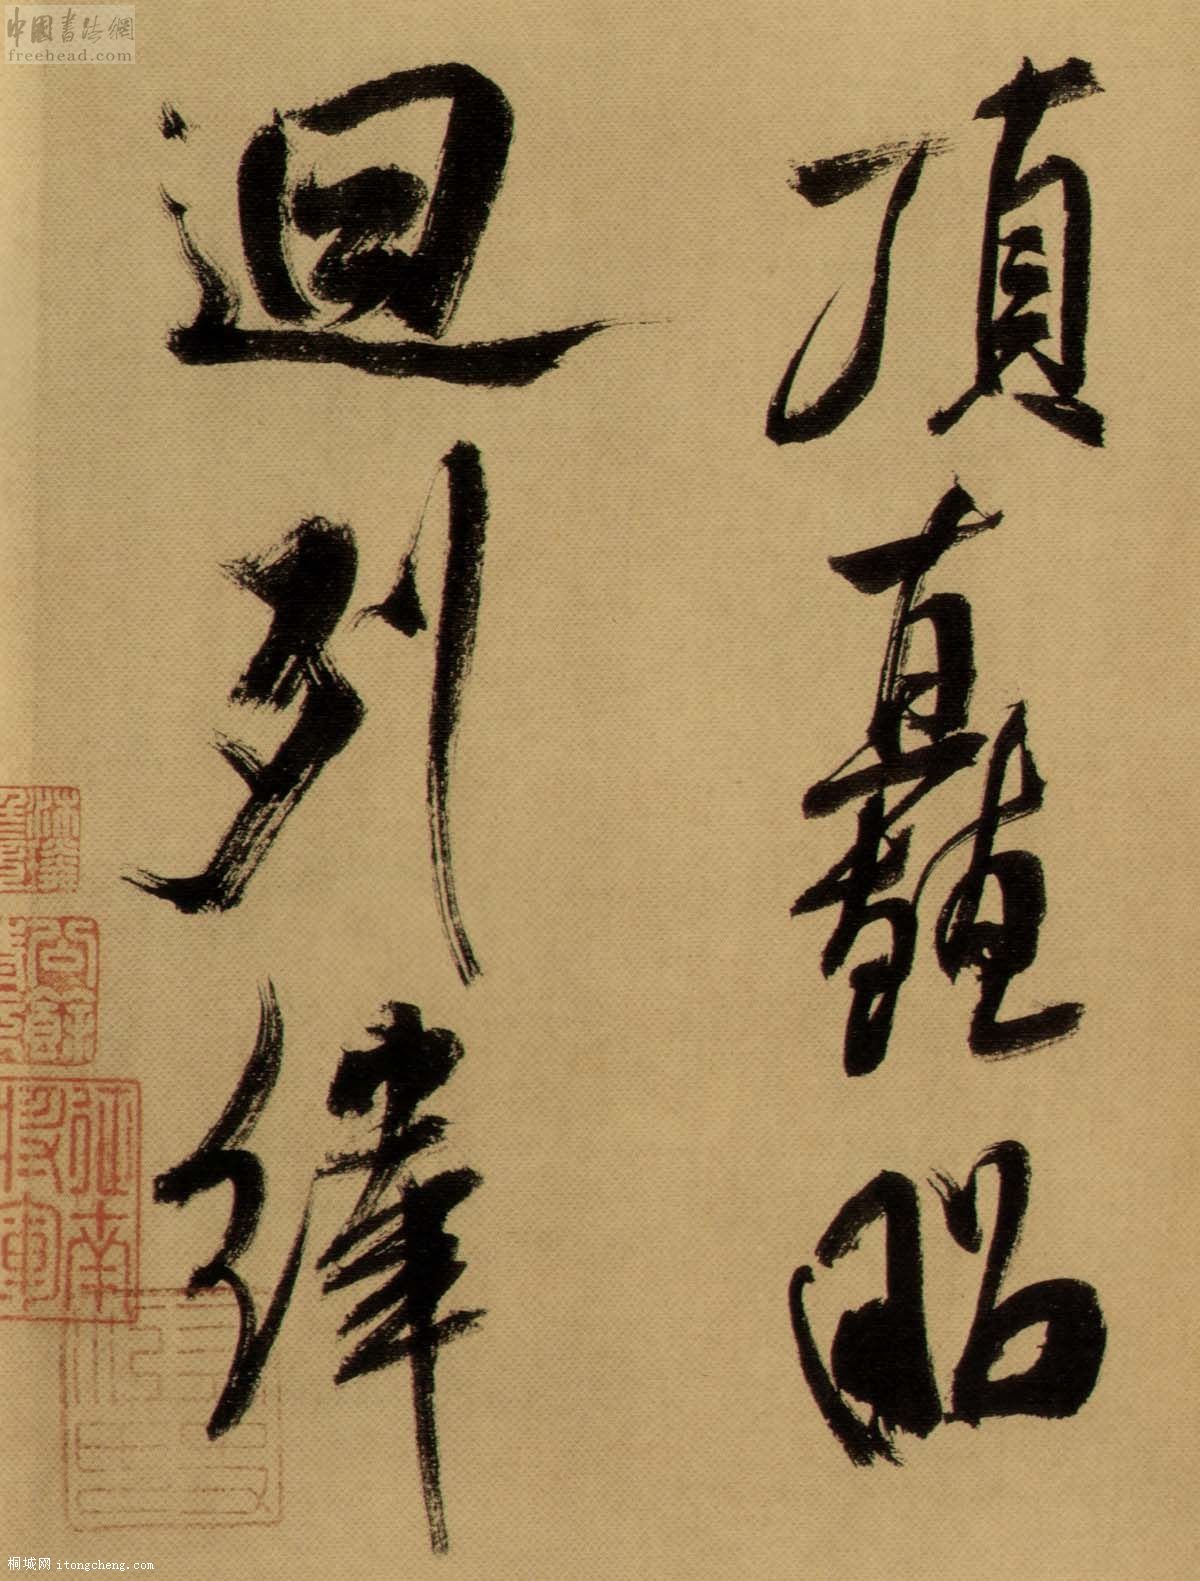 中國書法網
freehead.com
頂矗昭
迴列緯
征南將軍
桐城网 itongcheng.com